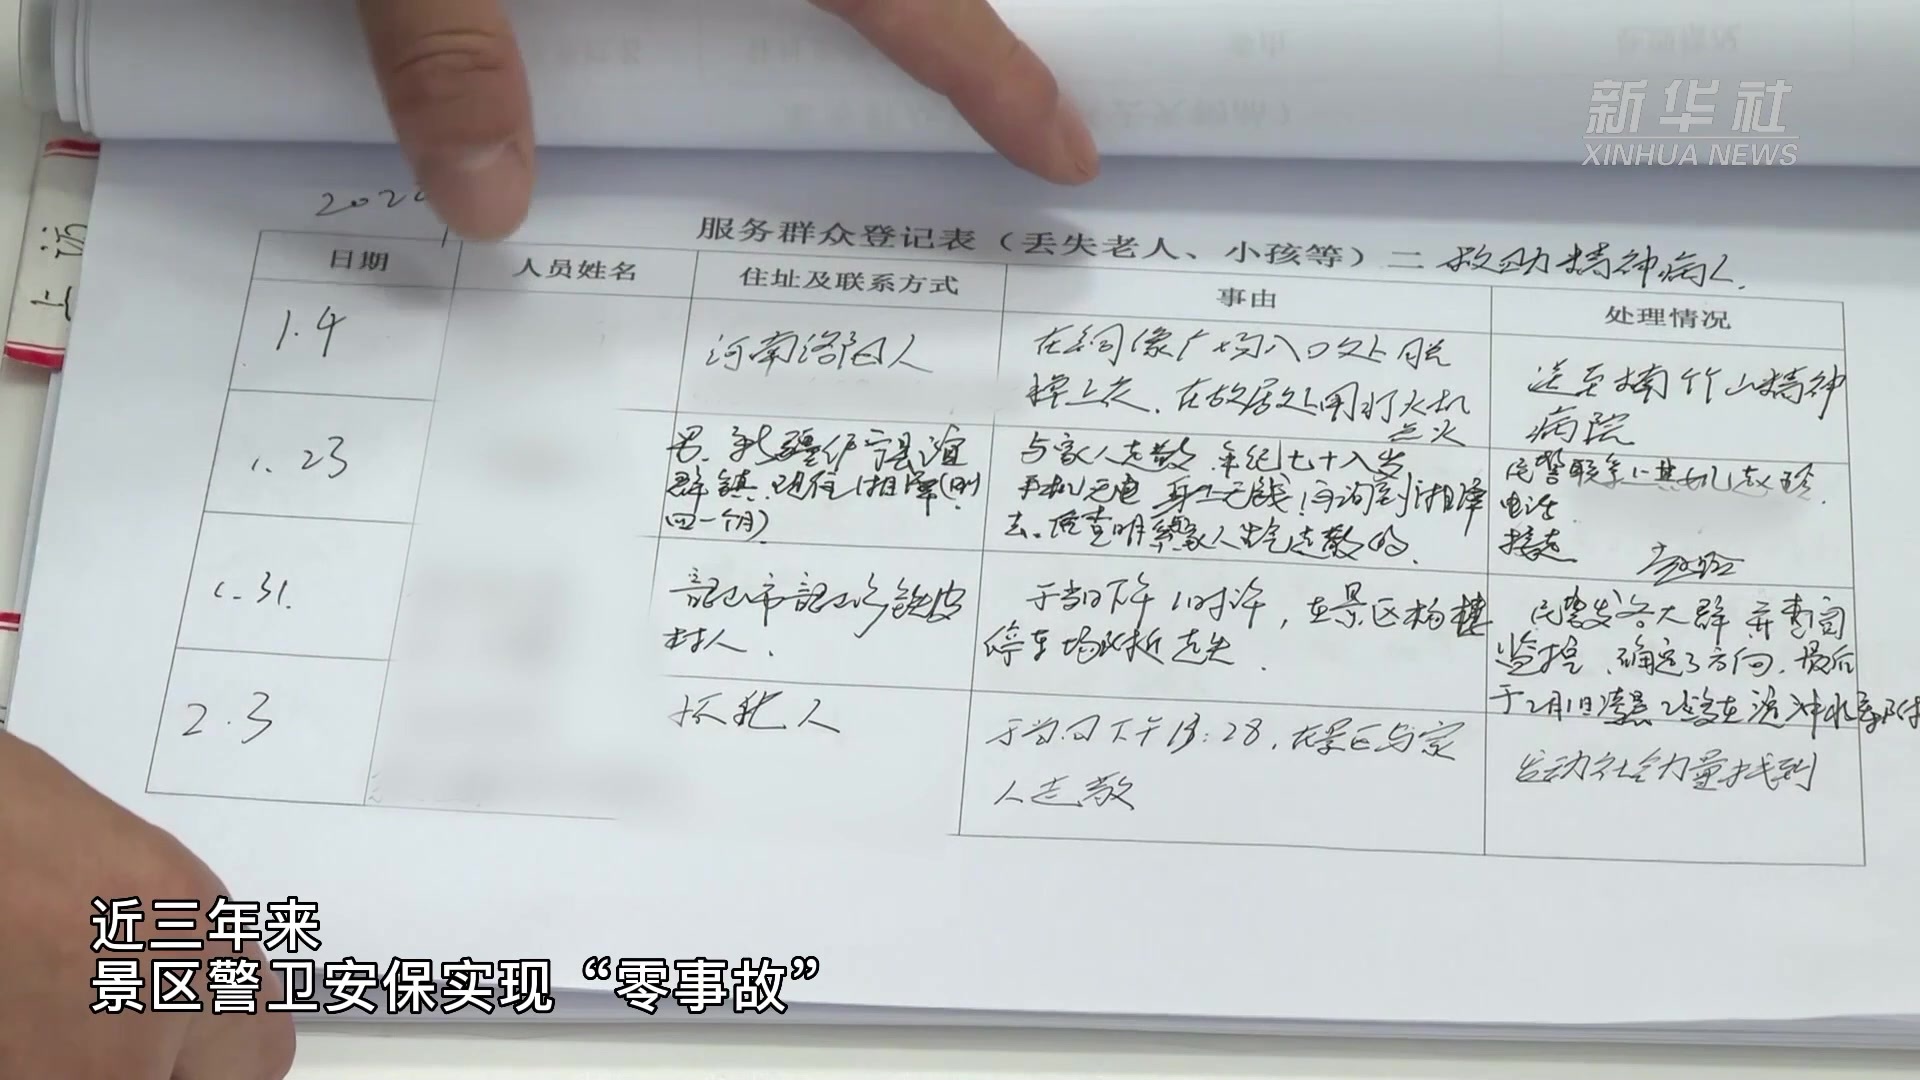 新华社
XINHUA NEWS
服务群众登记表（丢失老人、小孩等）二 救助精神病人.
日期
人员姓名
住址及联系方式
事由
处理情况
1.4
河南洛阳人
在铜像广场入口处脱
在故居处用打火机
点火
送至楠竹山精神
病院
1.23
男.新疆伊宁县
群镇.现住湘潭(刚
一个月)
与家人走散.年纪七十八岁
手机无电 身上无钱
家人走散的.
民警联系
电话
接走
1.31.
韶山市韶山乡铁皮
村人.
于当日下午1时许,在景区杨楼
停车场附近走失.
民警发各大群并查阅
监控.确定了方向.最后
于2月1日凌晨2点多在
2.3
于当日下午13:28.在景区与家
人走散
发动社会力量找到
近三年来
景区警卫安保实现“零事故”